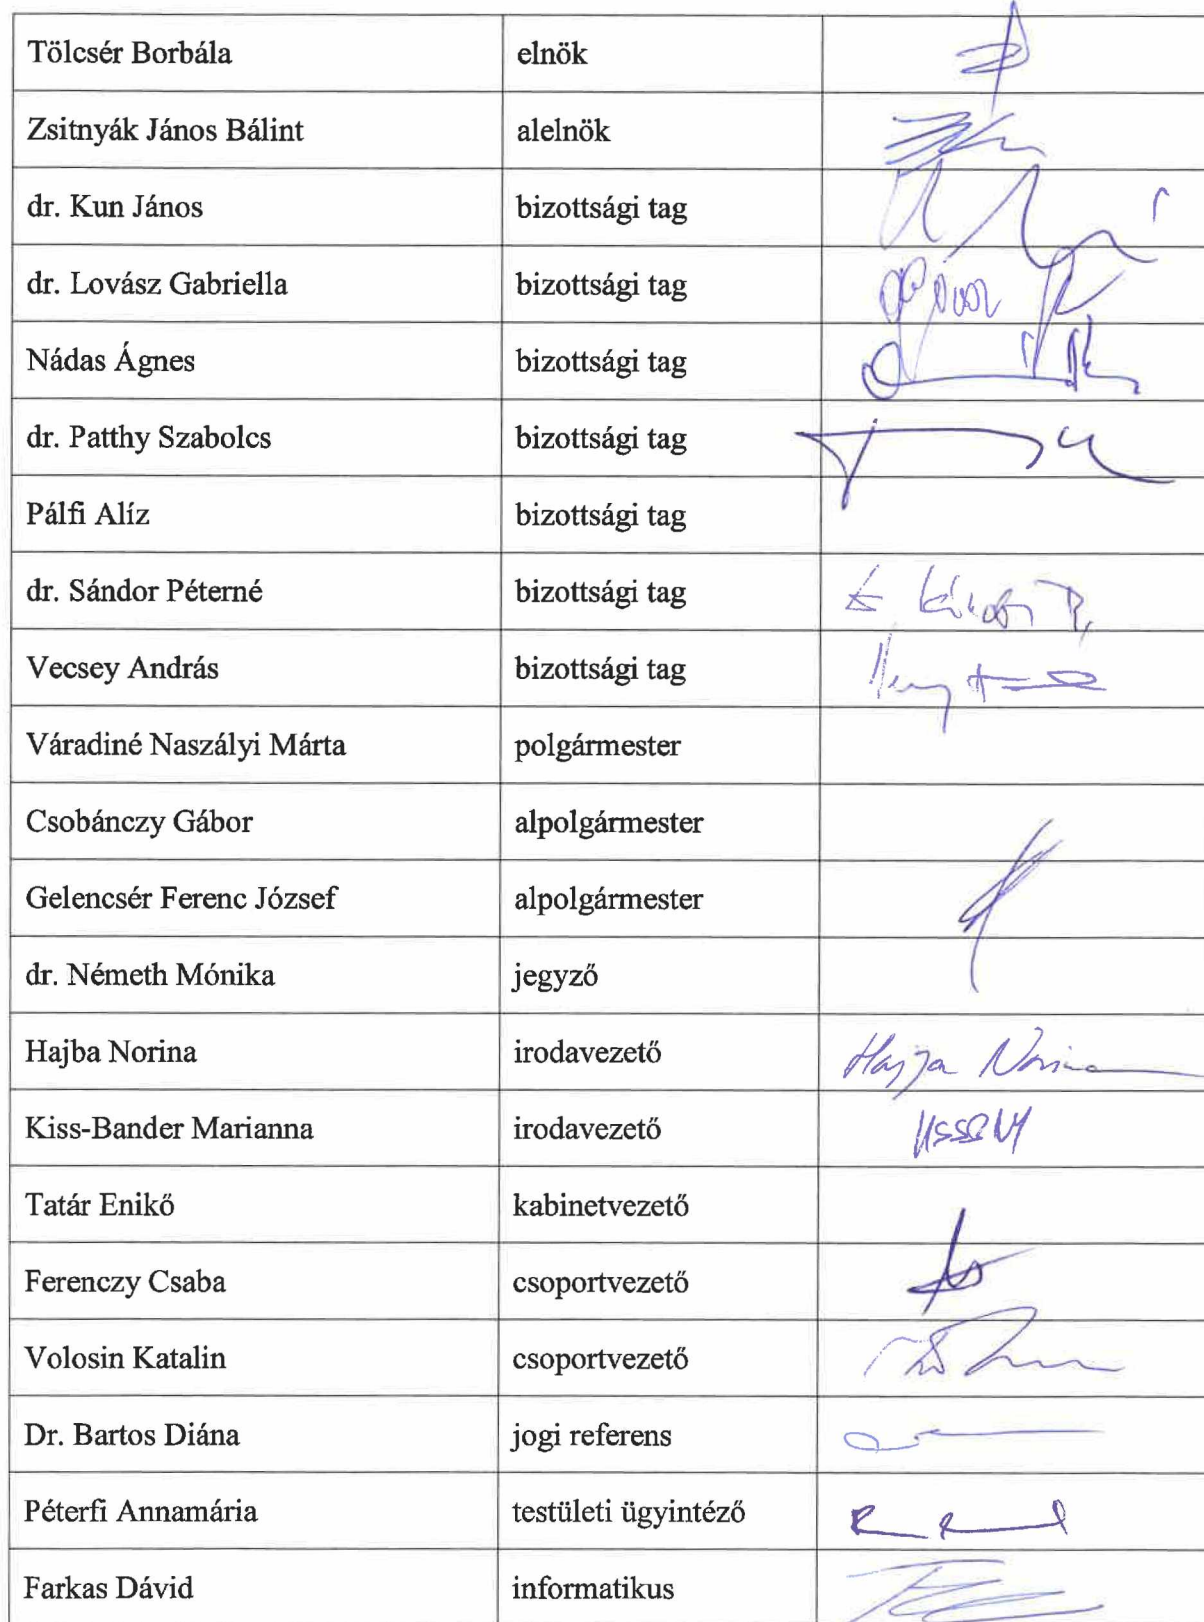 Tölcsér Borbála elnök
Zsitnyák János Bálint alelnök
dr. Kun János bizottsági tag
dr. Lovász Gabriella bizottsági tag
Nádas Ágnes bizottsági tag
dr. Patthy Szabolcs bizottsági tag
Pálfi Alíz bizottsági tag
dr. Sándor Péterné bizottsági tag
Vecsey András bizottsági tag
Váradiné Naszályi Márta polgármester
Csobánczy Gábor alpolgármester
Gelencsér Ferenc József alpolgármester
dr. Németh Mónika jegyző
Hajba Norina irodavezető
Kiss-Bander Marianna irodavezető
Tatár Enikő kabinetvezető
Ferenczy Csaba csoportvezető
Volosin Katalin csoportvezető
Dr. Bartos Diána jogi referens
Péterfi Annamária testületi ügyintéző
Farkas Dávid informatikus